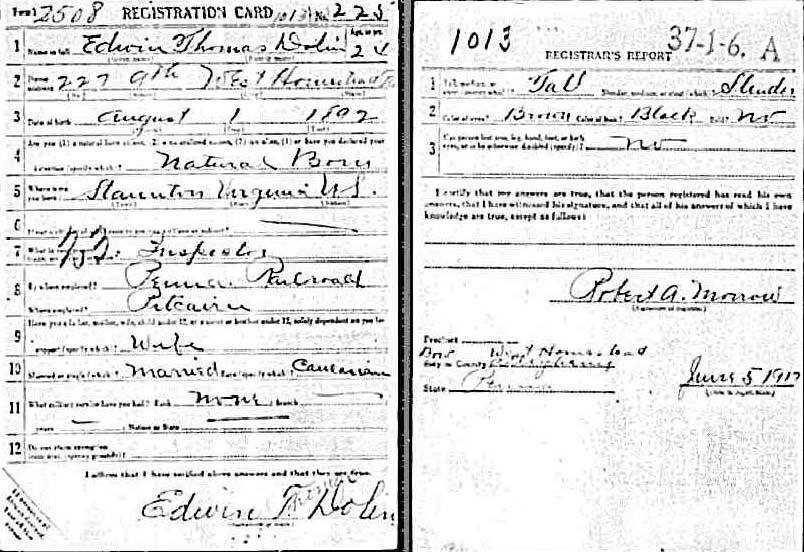 Form 1 2508 REGISTRATION CARD 1013 No. 225
1 Name in full Edwin Thomas Dolin Age, in yrs. 24
(Given name) (Family name)
2 Home address 227 9th West Homestead Pa
(No.) (Street) (City) (State)
3 Date of birth August 1 1892
(Month) (Day) (Year)
Are you (1) a natural born citizen, (2) a naturalized citizen, (3) an alien, (4) or have you declared your
4 intention (specify which)? Natural Born
5 Where were you born? Staunton Virginia U.S.
(Town) (State) (Nation)
6 If not a citizen, of what country are you a citizen or subject?
7 What is your present trade, occupation, or office? Inspector
8 By whom employed? Penna. Railroad
Where employed? Pitcairn
9 Have you a father, mother, wife, child under 12, or a sister or brother under 12, solely dependent on you for
support (specify which)? Wife
10 Married or single (which)? Married Race (specify which)? Caucasian
11 What military service have you had? Rank None ; branch
years ; Nation or State
12 Do you claim exemption
from draft (specify grounds)?
I affirm that I have verified above answers and that they are true.
Thomas
Edwin T. Dolin
1013 37-1-6. A
REGISTRAR'S REPORT
1 Tall, medium, or short (specify which)? Tall Slender, medium, or stout (which)? Slender
2 Color of eyes? Brown Color of hair? Black Bald? No
3 Has person lost arm, leg, hand, foot, or both
eyes, or is he otherwise disabled (specify)? No
I certify that my answers are true, that the person registered has read his own
answers, that I have witnessed his signature, and that all of his answers of which I have
knowledge are true, except as follows:
Robert A. Morrow
(Signature of registrar)
Precinct
Bor West Homestead
City or County Allegheny
State Penna
June 5 1917
(Date of registration)